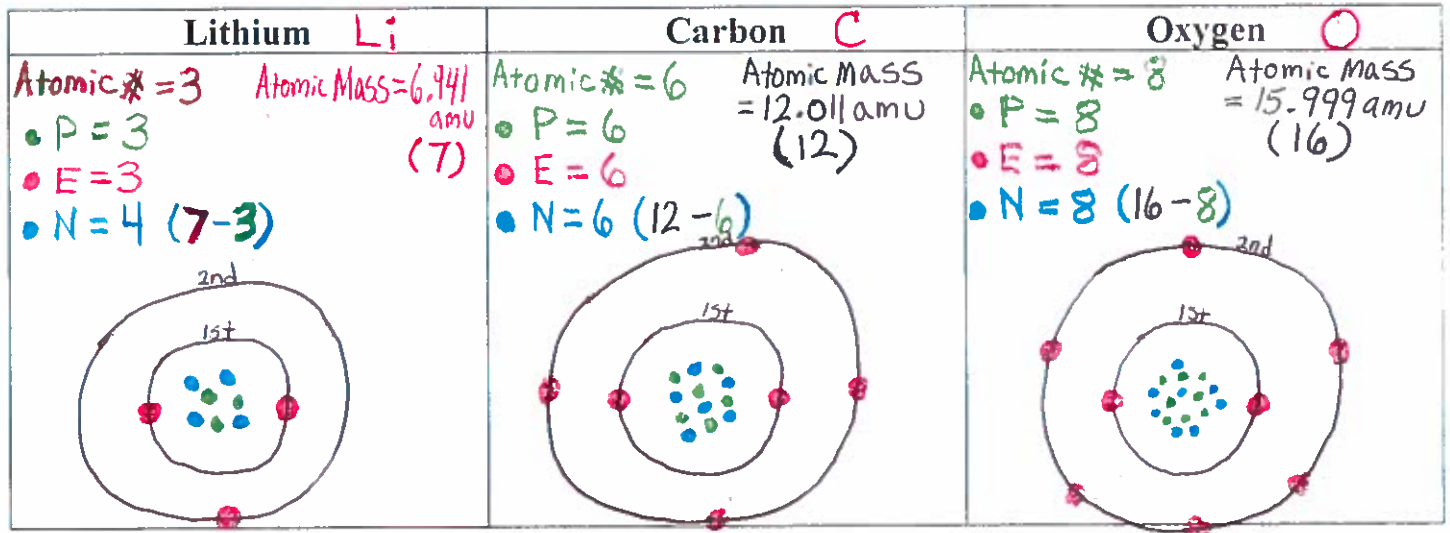 Lithium Li
Atomic # = 3
Atomic Mass = 6.941
amu
(7)
P = 3
E = 3
N = 4 (7-3)
2nd
1st
Carbon C
Atomic # = 6
Atomic Mass
= 12.011 amu
(12)
P = 6
E = 6
N = 6 (12-6)
2nd
1st
Oxygen O
Atomic # = 8
Atomic Mass
= 15.999 amu
(16)
P = 8
E = 8
N = 8 (16-8)
2nd
1st